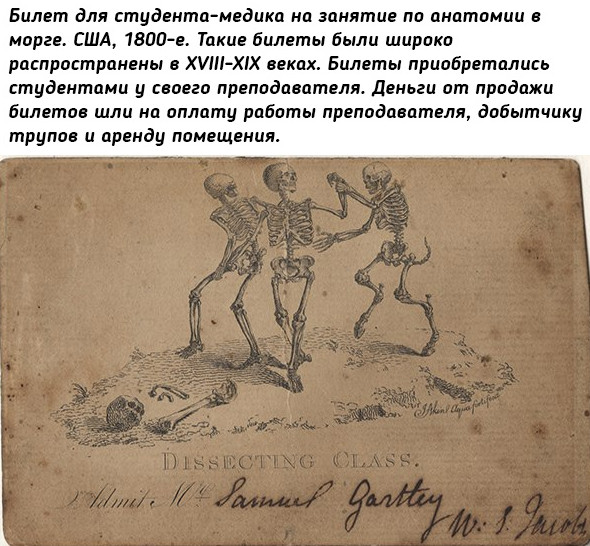 Билет для студента-медика на занятие по анатомии в
морге. США, 1800-е. Такие билеты были широко
распространены в XVIII-XIX веках. Билеты приобретались
студентами у своего преподавателя. Деньги от продажи
билетов шли на оплату работы преподавателя, добытчику
трупов и аренду помещения.
DISSECTING CLASS.
Admit Mr Samuel
W. S. Jacobs